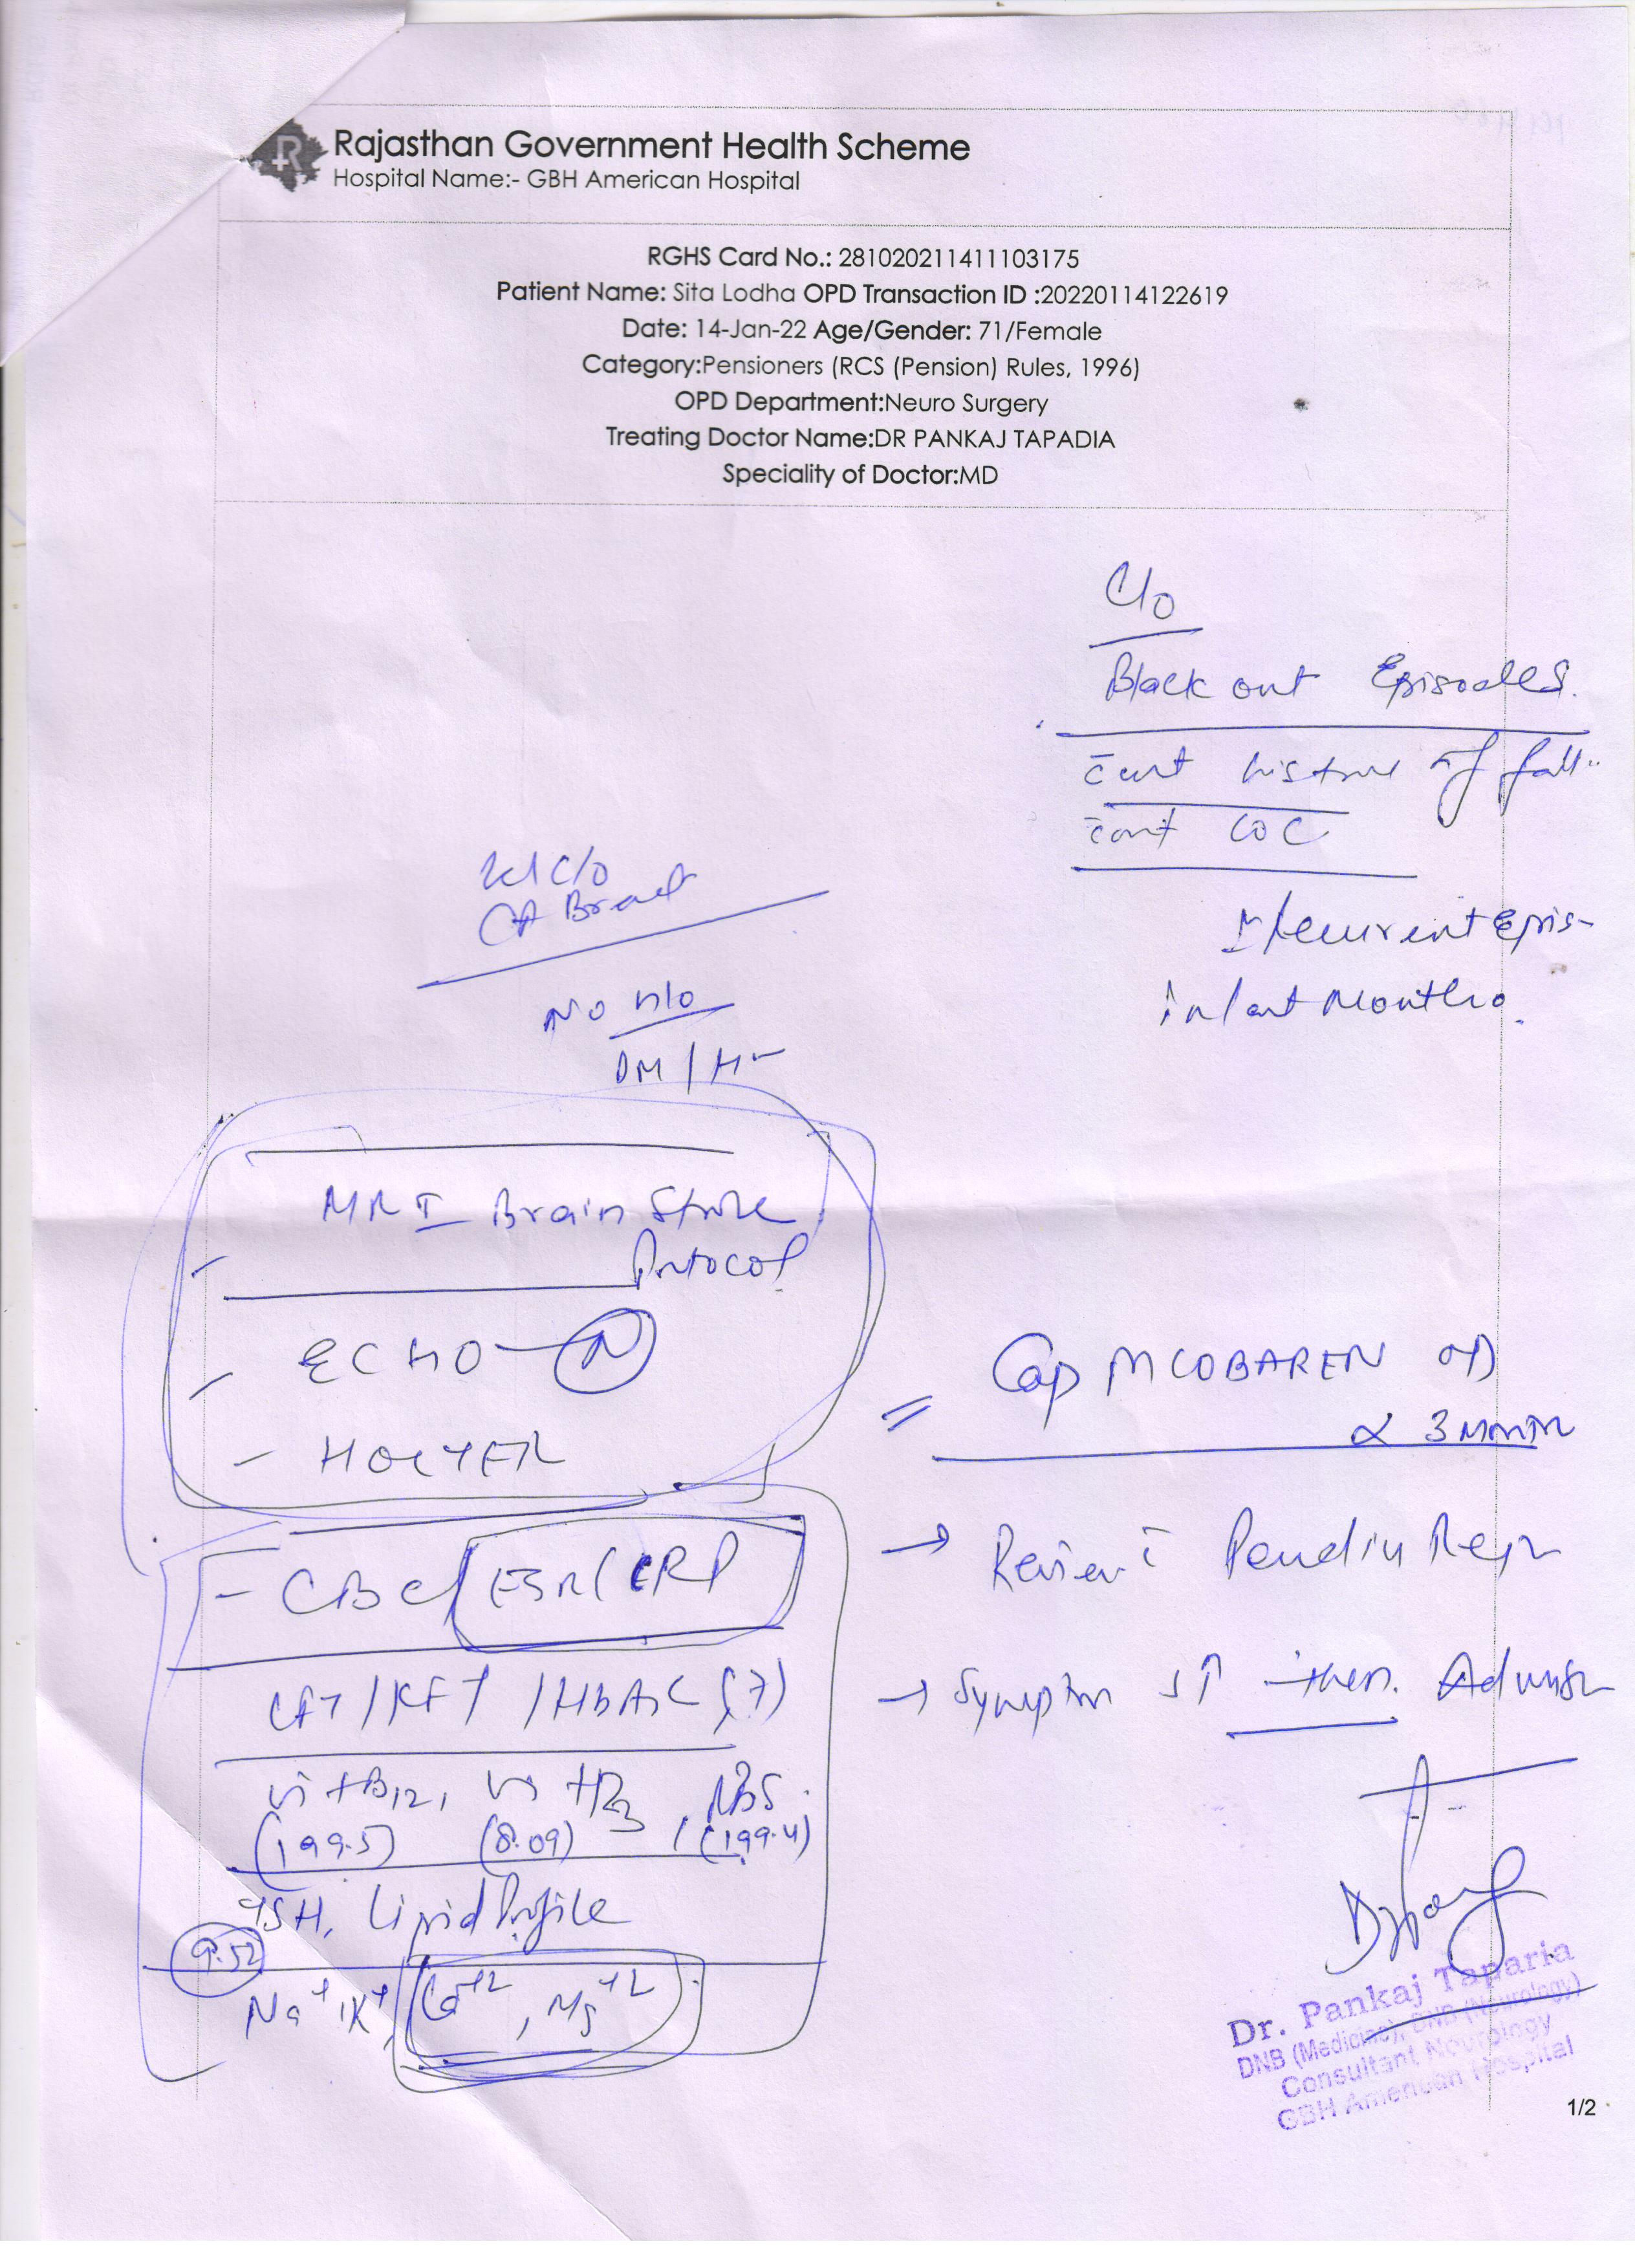 Rajasthan Government Health Scheme
Hospital Name:- GBH American Hospital
RGHS Card No.: 281020211411103175
Patient Name: Sita Lodha OPD Transaction ID :20220114122619
Date: 14-Jan-22 Age/Gender: 71/Female
Category:Pensioners (RCS (Pension) Rules, 1996)
OPD Department:Neuro Surgery
Treating Doctor Name:DR PANKAJ TAPADIA
Speciality of Doctor:MD
C/o
Black out Episodes.
history of fall
LOC
Recurrent Epis-
in last Months.
K/C/O
CA Breast
No H/O
DM / H
MRI Brain Stroke
Protocol
- ECHO - N
- HOLTER
- CBC/ESR/CRP
LFT/KFT/HbA1C (7)
Vit B12, Vit D3, RBS.
(199.5) (8.09) (199.4)
TSH, Lipid Profile
9.52
Na+, K+, Ca+2, Mg+2
= Cap MCOBAREN OD
x 3
→ Review Pending
→ Symptom ↑ then
Dr. Pankaj Taparia
DNB (Medicine), DNB (Neurology)
Consultant Neurology
GBH American Hospital
1/2